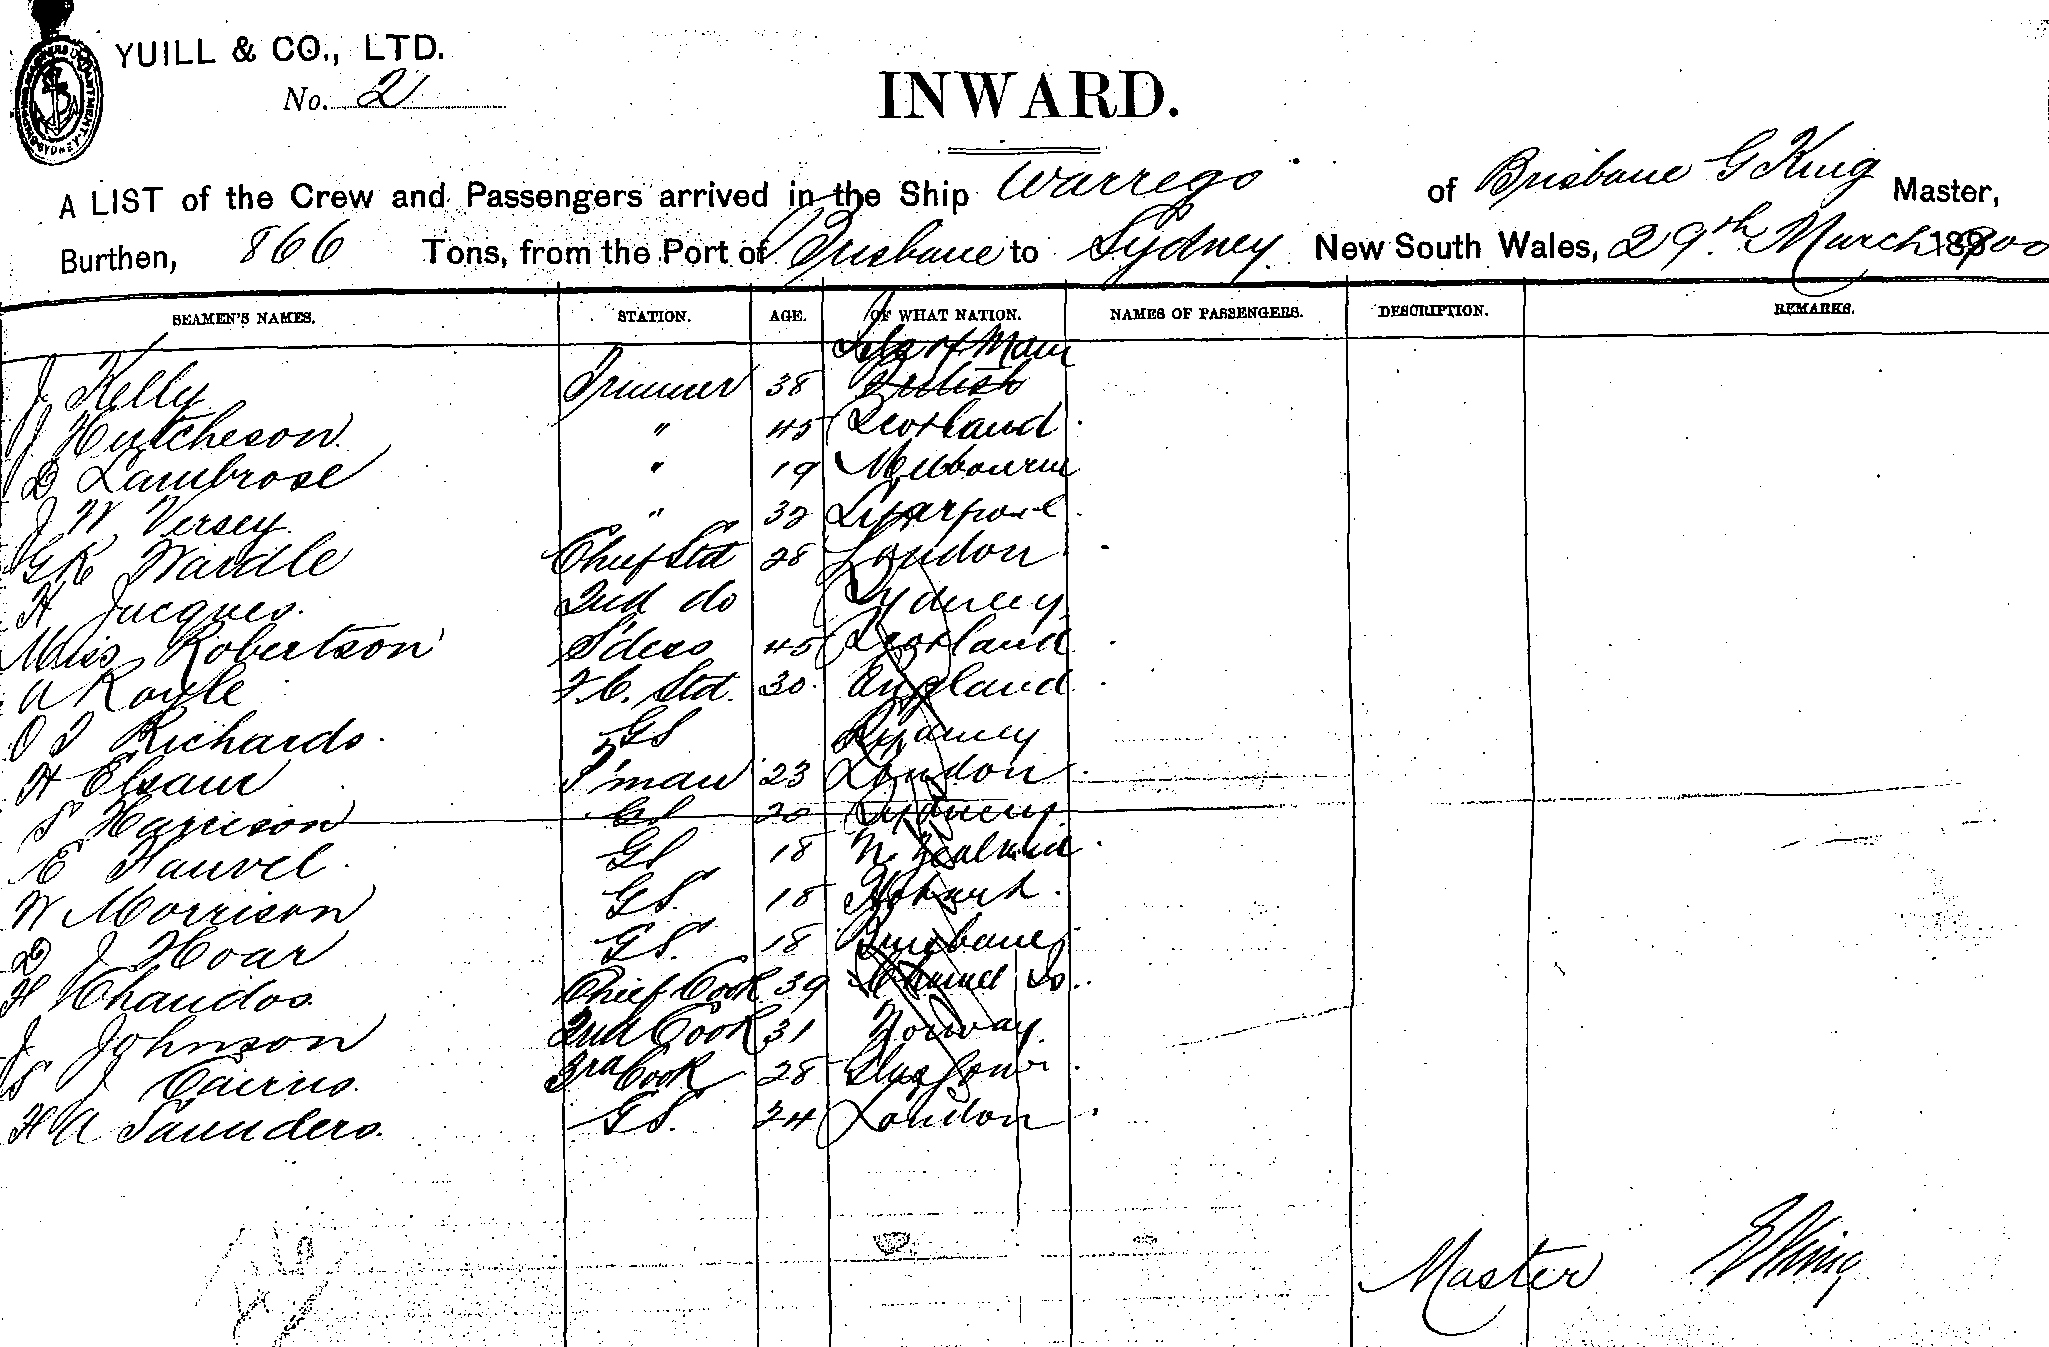 YUILL & CO., LTD.
No. 2
INWARD.
A LIST of the Crew and Passengers arrived in the Ship Warrego of Brisbane G King Master,
Burthen, 866 Tons, from the Port of Brisbane to Sydney New South Wales, 29th March 1900
SEAMEN'S NAMES. STATION. AGE. OF WHAT NATION. NAMES OF PASSENGERS. DESCRIPTION. REMARKS.
Isle of Man
J Kelly Trimmer 38 British
J Hutcheson " 45 Scotland
D Lambrose " 19 Melbourne
J W Versey " 32 Liverpool
G R Wardle Chief Std 28 London
H Jacques 2nd do Sydney
Miss Robertson S'dess 45 Scotland
A Royle F.C. Std. 30 England
O J Richards GS Sydney
H Elsaur P'man 23 London
S Harrison GS 20 Sydney
E Fauvel GS 18 N. Zealand
W Morrison GS. 18 Hobart
D J Hoar GS. 18 Brisbane
H Chandos Chief Cook 39 Channel Is.
J Johnson 2nd Cook 31 Norway
S J Cairns 3rd Cook 28 Glasgow
H A Saunders GS. 24 London
Master G King